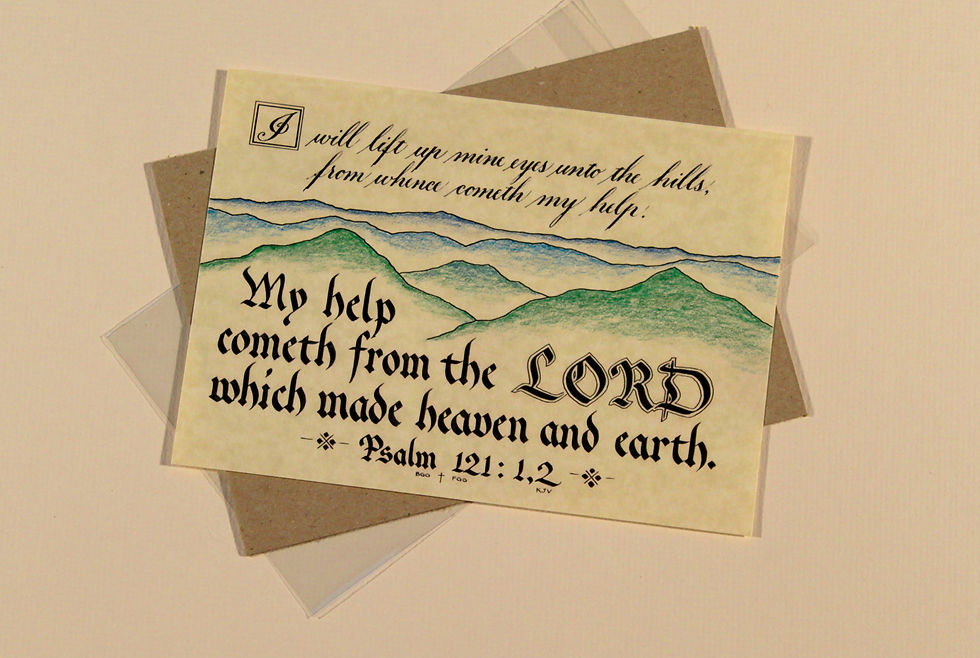 I will lift up mine eyes unto the hills,
from whence cometh my help.
My help
cometh from the LORD
which made heaven and earth.
Psalm 121:1,2
KJV